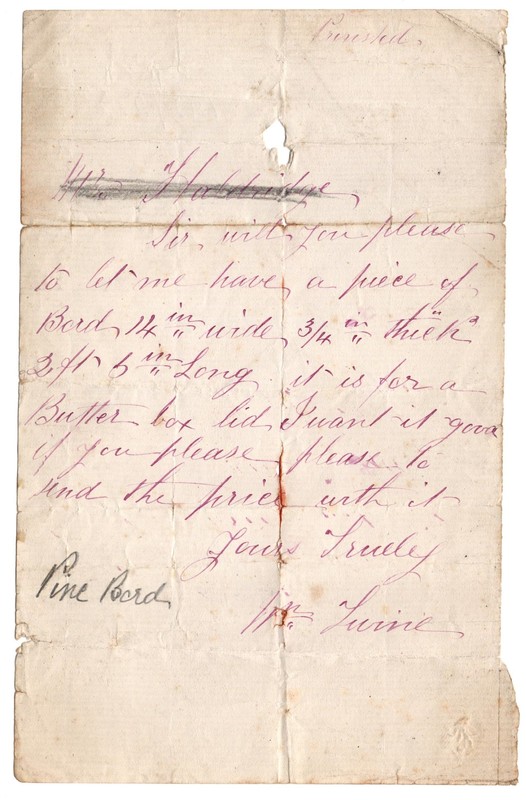 Prinsted
Mr Holdridge
Sir will you please
to let me have a piece of
Bord 14 in wide 3/4 in thick
2 ft 6 in Long it is for a
Butter box lid I want it good
if you please please to
send the price with it
Yours Truely
Pine Bord
Wm